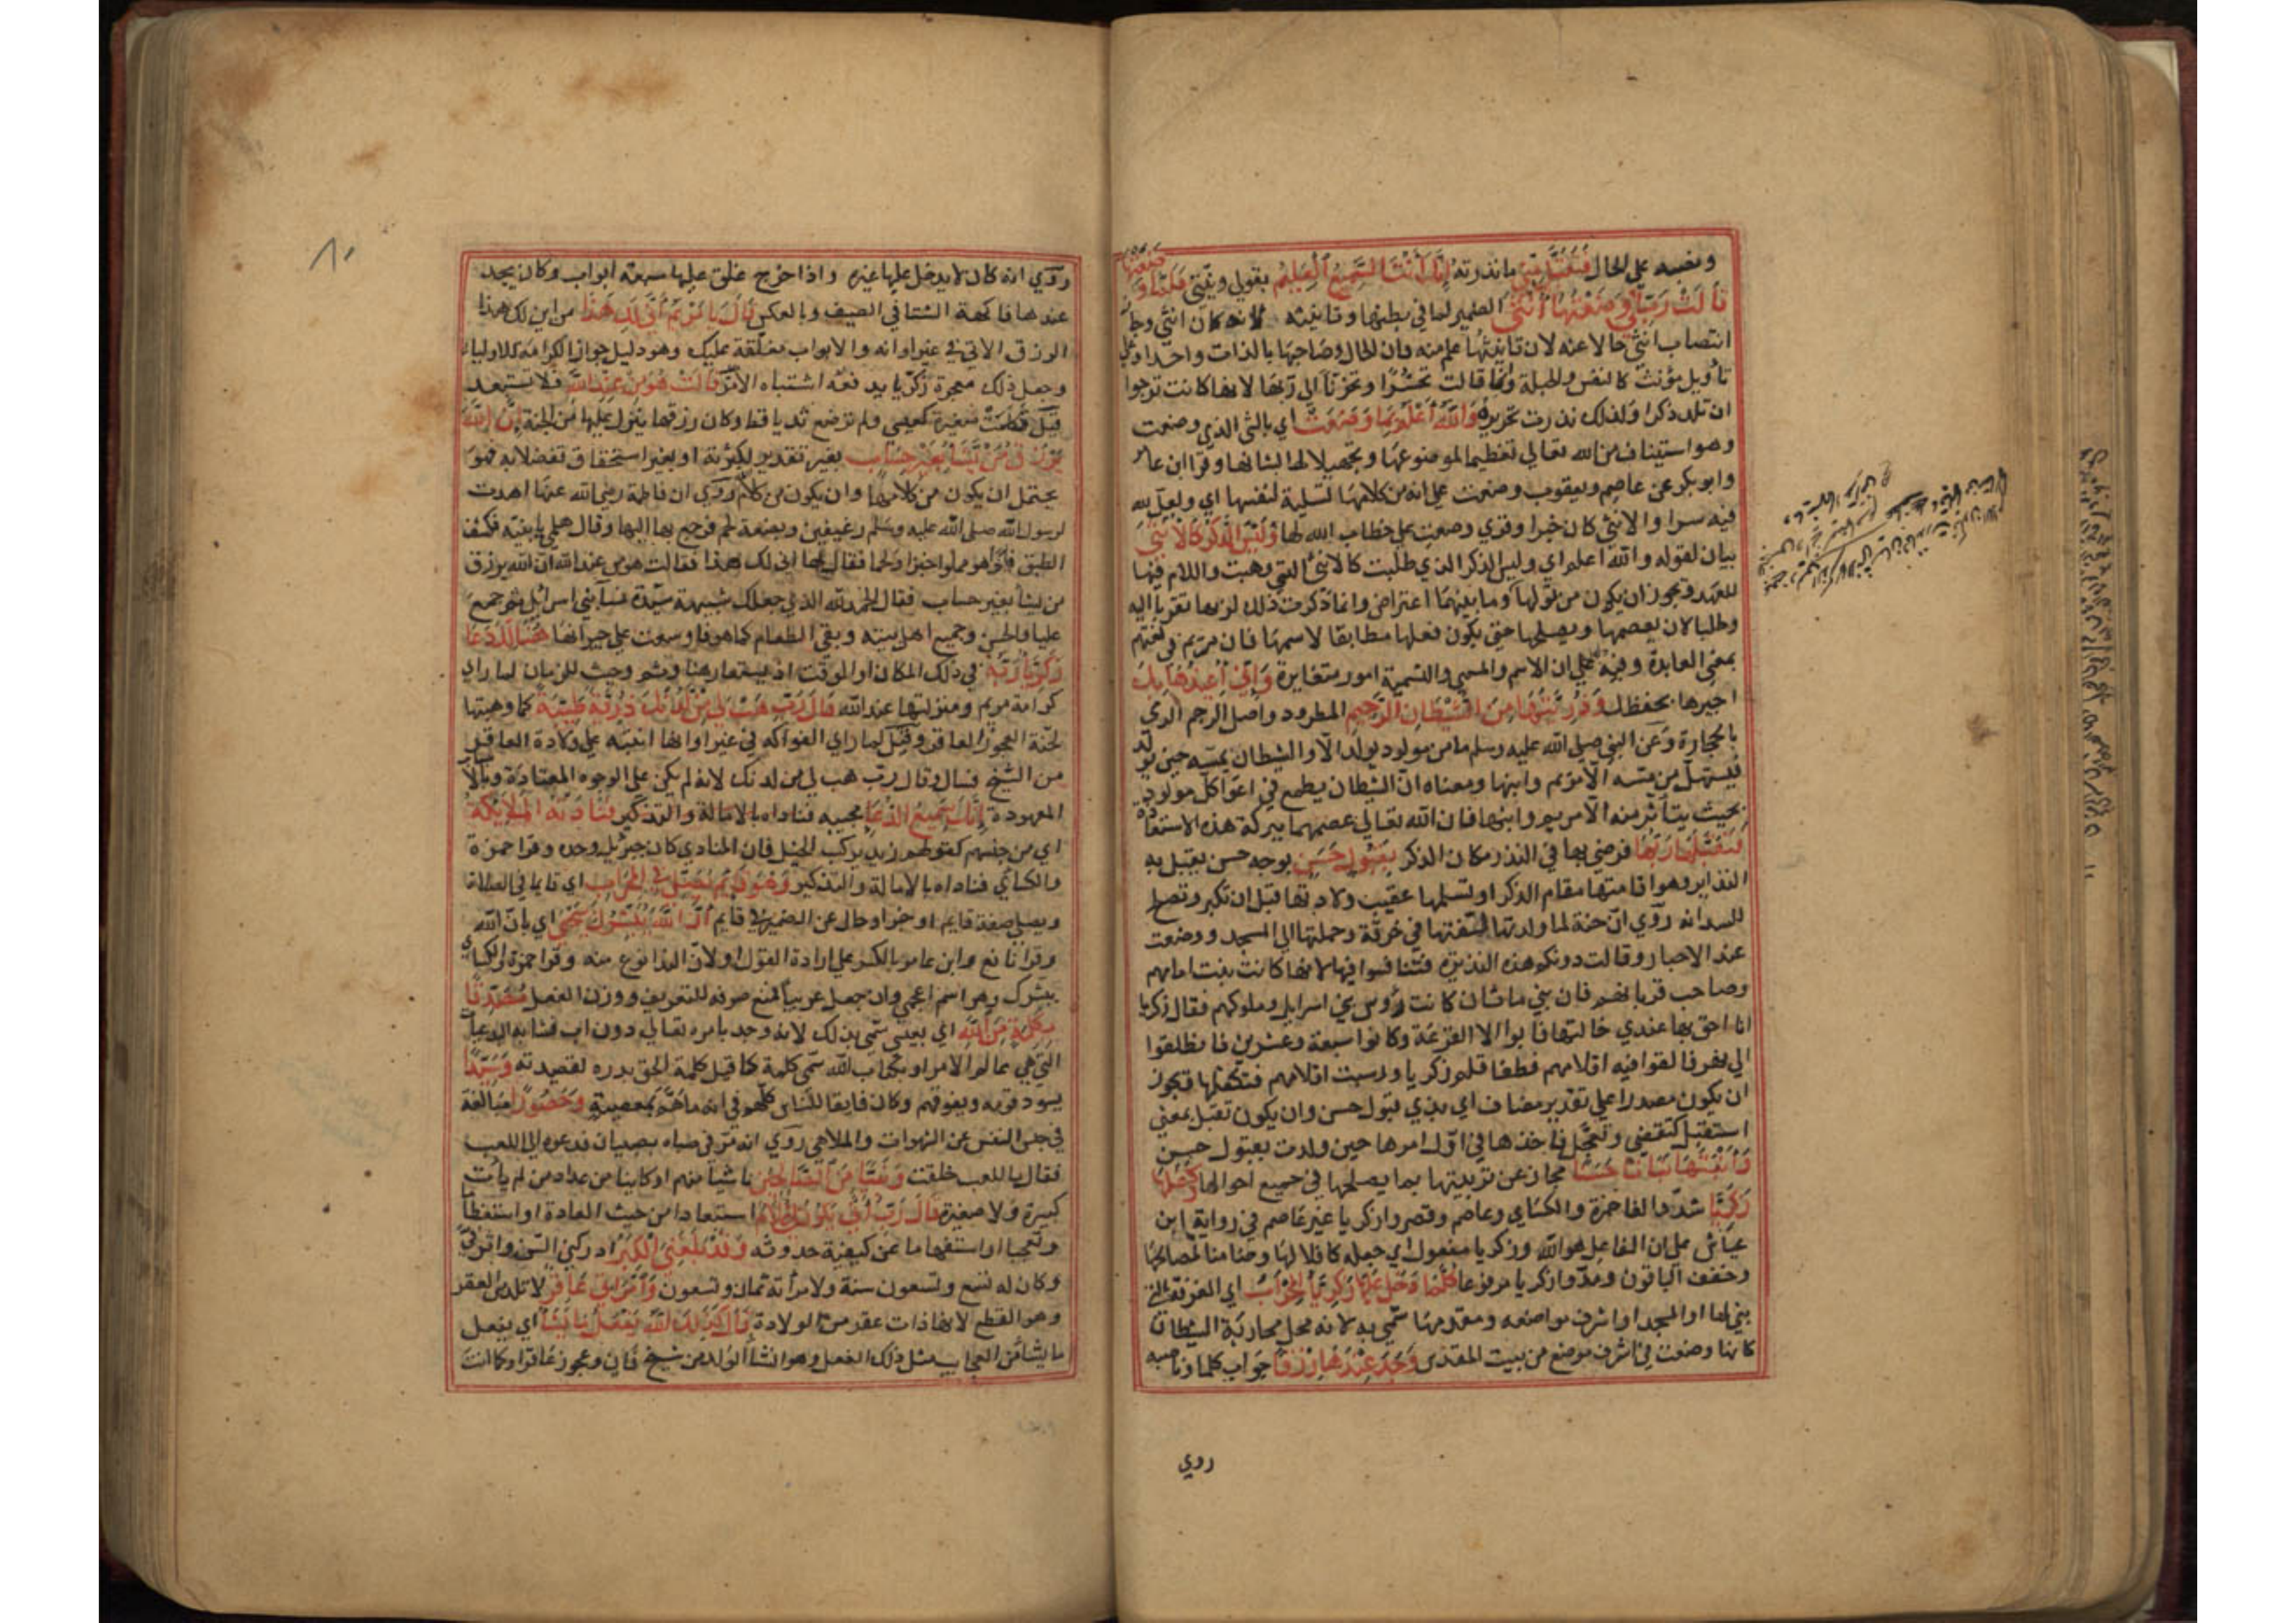 ونصبه على الحال فَتَقَبَّلْ مِنِّي ما نذرته إِنَّكَ أَنْتَ السَّمِيعُ الْعَلِيمُ بقولي ونيتي فَلَمَّا وَضَعَتْهَا
قَالَتْ رَبِّ إِنِّي وَضَعْتُهَا أُنْثَى الضمير لما في بطنها وتانيثه لانه كان انثى وجاز
انتصاب انثى حالا عنه لان تانيثها علم منه فان الحال وصاحبها بالذات واحد او على
تأويل مؤنث كالنفس والحبلة وانما قالت تحسّرا وتحزّنا الى ربها لانها كانت ترجوا
ان تلد ذكرا ولذلك نذرت تحريره وَاللَّهُ أَعْلَمُ بِمَا وَضَعَتْ اي بالشي الذي وضعت
وهو استيناف من الله تعالى تعظيما لموضوعها وتجهيلا لها بشانها وقرا ابن عامر
وابو بكر عن عاصم ويعقوب وضعت على انه من كلامها تسلية لنفسها اي ولعل لله
فيه سرا والانثى كان خيرا وقري وضعت على خطاب الله لها وَلَيْسَ الذَّكَرُ كَالْأُنْثَى
بيان لقوله والله اعلم اي وليس الذكر الذي طلبت كالانثى التي وهبت واللام فيها
للعهد وتجوز ان يكون من قولها وما بينهما اعتراض وانما ذكرت ذلك لربها تقربا اليه
وطلبا لان يعصمها ويصلحها حتى يكون فعلها مطابقا لاسمها فان مريم في لغتهم
بمعنى العابدة وفيه على ان الاسم والمسمى والتسمية امور متغايرة وَإِنِّي أُعِيذُهَا بِكَ
اجيرها بحفظك وَذُرِّيَّتَهَا مِنَ الشَّيْطَانِ الرَّجِيمِ المطرود واصل الرجم الرمي
بالحجارة وعن النبي صلى الله عليه وسلم ما من مولود يولد الا والشيطان يمسه حين يولد
فيستهل من مسه الا مريم وابنها ومعناه ان الشيطان يطمع في اغوا كل مولود
بحيث يتأثر منه الا مريم وابنها فان الله تعالى عصمهما ببركة هذه الاستعاذة
فَتَقَبَّلَهَا رَبُّهَا فرضي بها في النذر مكان الذكر بِقَبُولٍ حَسَنٍ بوجه حسن يقبل به
النذاير وهو اقامتها مقام الذكر او تسلمها عقيب ولادتها قبل ان تكبر وتصلح
للسدانة روي ان حنة لما ولدتها لفتها في خرقة وحملتها الى المسجد ووضعت
عند الاحبار وقالت دونكم هذه النذيرة فتنافسوا فيها لانها كانت بنت امامهم
وصاحب قربانهم فان بني ماثان كانت رؤس بني اسرايل وملوكهم فقال زكريا
انا احق بها عندي خالتها فابوا الا القرعة وكانوا سبعة وعشرين فانطلقوا
الى نهر فالقوا فيه اقلامهم فطفا قلم زكريا ورسبت اقلامهم فتكفلها ويجوز
ان يكون مصدرا على تقدير مضاف اي بذي قبول حسن وان يكون تقبل بمعنى
استقبل كتقضى وتعجل فاخذها في اول امرها حين ولدت بقبول حسن
وَأَنْبَتَهَا نَبَاتًا حَسَنًا مجاز عن تربيتها بما يصلحها في جميع احوالها وَكَفَّلَهَا
زَكَرِيَّا شدّد الفا حمزة والكساي وعاصم وقصروا زكريا غير عاصم في رواية ابن
عياش على ان الفاعل هو الله وزكريا مفعول اي جعله كافلا لها وضامنا لمصالحها
وخفف الباقون ومدوا زكريا مرفوعا كُلَّمَا دَخَلَ عَلَيْهَا زَكَرِيَّا الْمِحْرَابَ اي الغرفة التي
بني لها او المسجد او اشرف مواضعه ومقدمها سمي به لانه محل محاربة الشيطان
كانها وضعت في اشرف موضع من بيت المقدس وَجَدَ عِنْدَهَا رِزْقًا جواب كلما وناصبه
روي
٨٠
وروي انه كان لا يدخل عليها غيره واذا خرج غلق عليها سبعة ابواب وكان يجد
عندها فاكهة الشتا في الصيف وبالعكس قَالَ يَا مَرْيَمُ أَنَّى لَكِ هَذَا من اين لك هذا
الرزق الاتي في غير اوانه والابواب مغلقة عليك وهو دليل جواز الكرامة للاولياء
وجعل ذلك معجزة زكريا يدفعه اشتباه الامر قَالَتْ هُوَ مِنْ عِنْدِ اللَّهِ فلا تستبعد
قيل تكلمت صغيرة كعيسى ولم ترضع ثديا قط وكان رزقها ينزل عليها من الجنة إِنَّ اللَّهَ
يَرْزُقُ مَنْ يَشَاءُ بِغَيْرِ حِسَابٍ بغير تقدير لكثرته او بغير استحقاق تفضلا به فهو
يحتمل ان يكون من كلامها وان يكون من كلام روي ان فاطمة رضي الله عنها اهدت
لرسول الله صلى الله عليه وسلم رغيفين وبضعة لحم فرجع بها اليها وقال هلمي يا بنية فكشفت
الطبق فاذا هو مملوا خبزا ولحما فقال لها انى لك هذا فقالت هو من عند الله ان الله يرزق
من يشا بغير حساب فقال الحمد لله الذي جعلك شبيهة سيدة نسا بني اسرائيل ثم جمع
عليا والحسن وجميع اهل بيته وبقي الطعام كما هو فاوسعت على جيرانها هُنَالِكَ دَعَا
زَكَرِيَّا رَبَّهُ في ذلك المكان او الوقت اذ يستعار هنا وثم وحيث للزمان لما راي
كرامة مريم ومنزلتها عند الله قَالَ رَبِّ هَبْ لِي مِنْ لَدُنْكَ ذُرِّيَّةً طَيِّبَةً كما وهبتها
لحنة العجوز العاقر وقيل لما راي الفواكه في غير اوانها انتبه على ولادة العاقر
من الشيخ فسال وقال رب هب لي من لدنك لانه لم يكن على الوجوه المعتادة وبالاسباب
المعهودة إِنَّكَ سَمِيعُ الدُّعَاءِ مجيبه فناداه بالامالة والتذكير فَنَادَتْهُ الْمَلَائِكَةُ
اي من جنسهم كقولهم زيد يركب الخيل فان المنادي كان جبرئيل وحده وقرا حمزة
والكساي فناداه بالامالة والتذكير وَهُوَ قَائِمٌ يُصَلِّي فِي الْمِحْرَابِ اي قايما في الصلاة
ويصلي صفة قايم او خبر او حال عن الضمير في قايم أَنَّ اللَّهَ يُبَشِّرُكَ بِيَحْيَى اي بان الله
وقرا نافع وابن عامر بالكسر على ارادة القول او لان الندا نوع منه وقرا حمزة والكساي
يبشرك وهو اسم اعجمي وان جعل عربيا فمنع صرفه للتعريف ووزن الفعل مُصَدِّقًا
بِكَلِمَةٍ مِنَ اللَّهِ اي بعيسى سمي بذلك لانه وجد بامره تعالى دون اب فشابه البدعيات
التي هي عالم الامر او بكتاب الله سمي كلمة كما قيل كلمة الحويدرة لقصيدته وَسَيِّدًا
يسود قومه ويفوقهم وكان فايقا للناس كلهم في انه ما هم بمعصية وَحَصُورًا مبالغة
في حبس النفس عن الشهوات والملاهي روي انه مر في صباه بصبيان فدعوه الى اللعب
فقال ما للعب خلقت وَنَبِيًّا مِنَ الصَّالِحِينَ ناشيا منهم او كاينا من عداد من لم يأت
كبيرة ولا صغيرة قَالَ رَبِّ أَنَّى يَكُونُ لِي غُلَامٌ استبعادا من حيث العادة او استعظاما
وتعجبا او استفهاما عن كيفية حدوثه وَقَدْ بَلَغَنِيَ الْكِبَرُ ادركني السن واثر في
وكان له تسع وتسعون سنة ولامراته ثمان وتسعون وَامْرَأَتِي عَاقِرٌ لا تلد من العقر
وهو القطع لانها ذات عقر من الولادة قَالَ كَذَلِكَ اللَّهُ يَفْعَلُ مَا يَشَاءُ اي يفعل
ما يشا من العجايب مثل ذلك الفعل وهو انشا الولد من شيخ فان وعجوز عاقر او كما انت